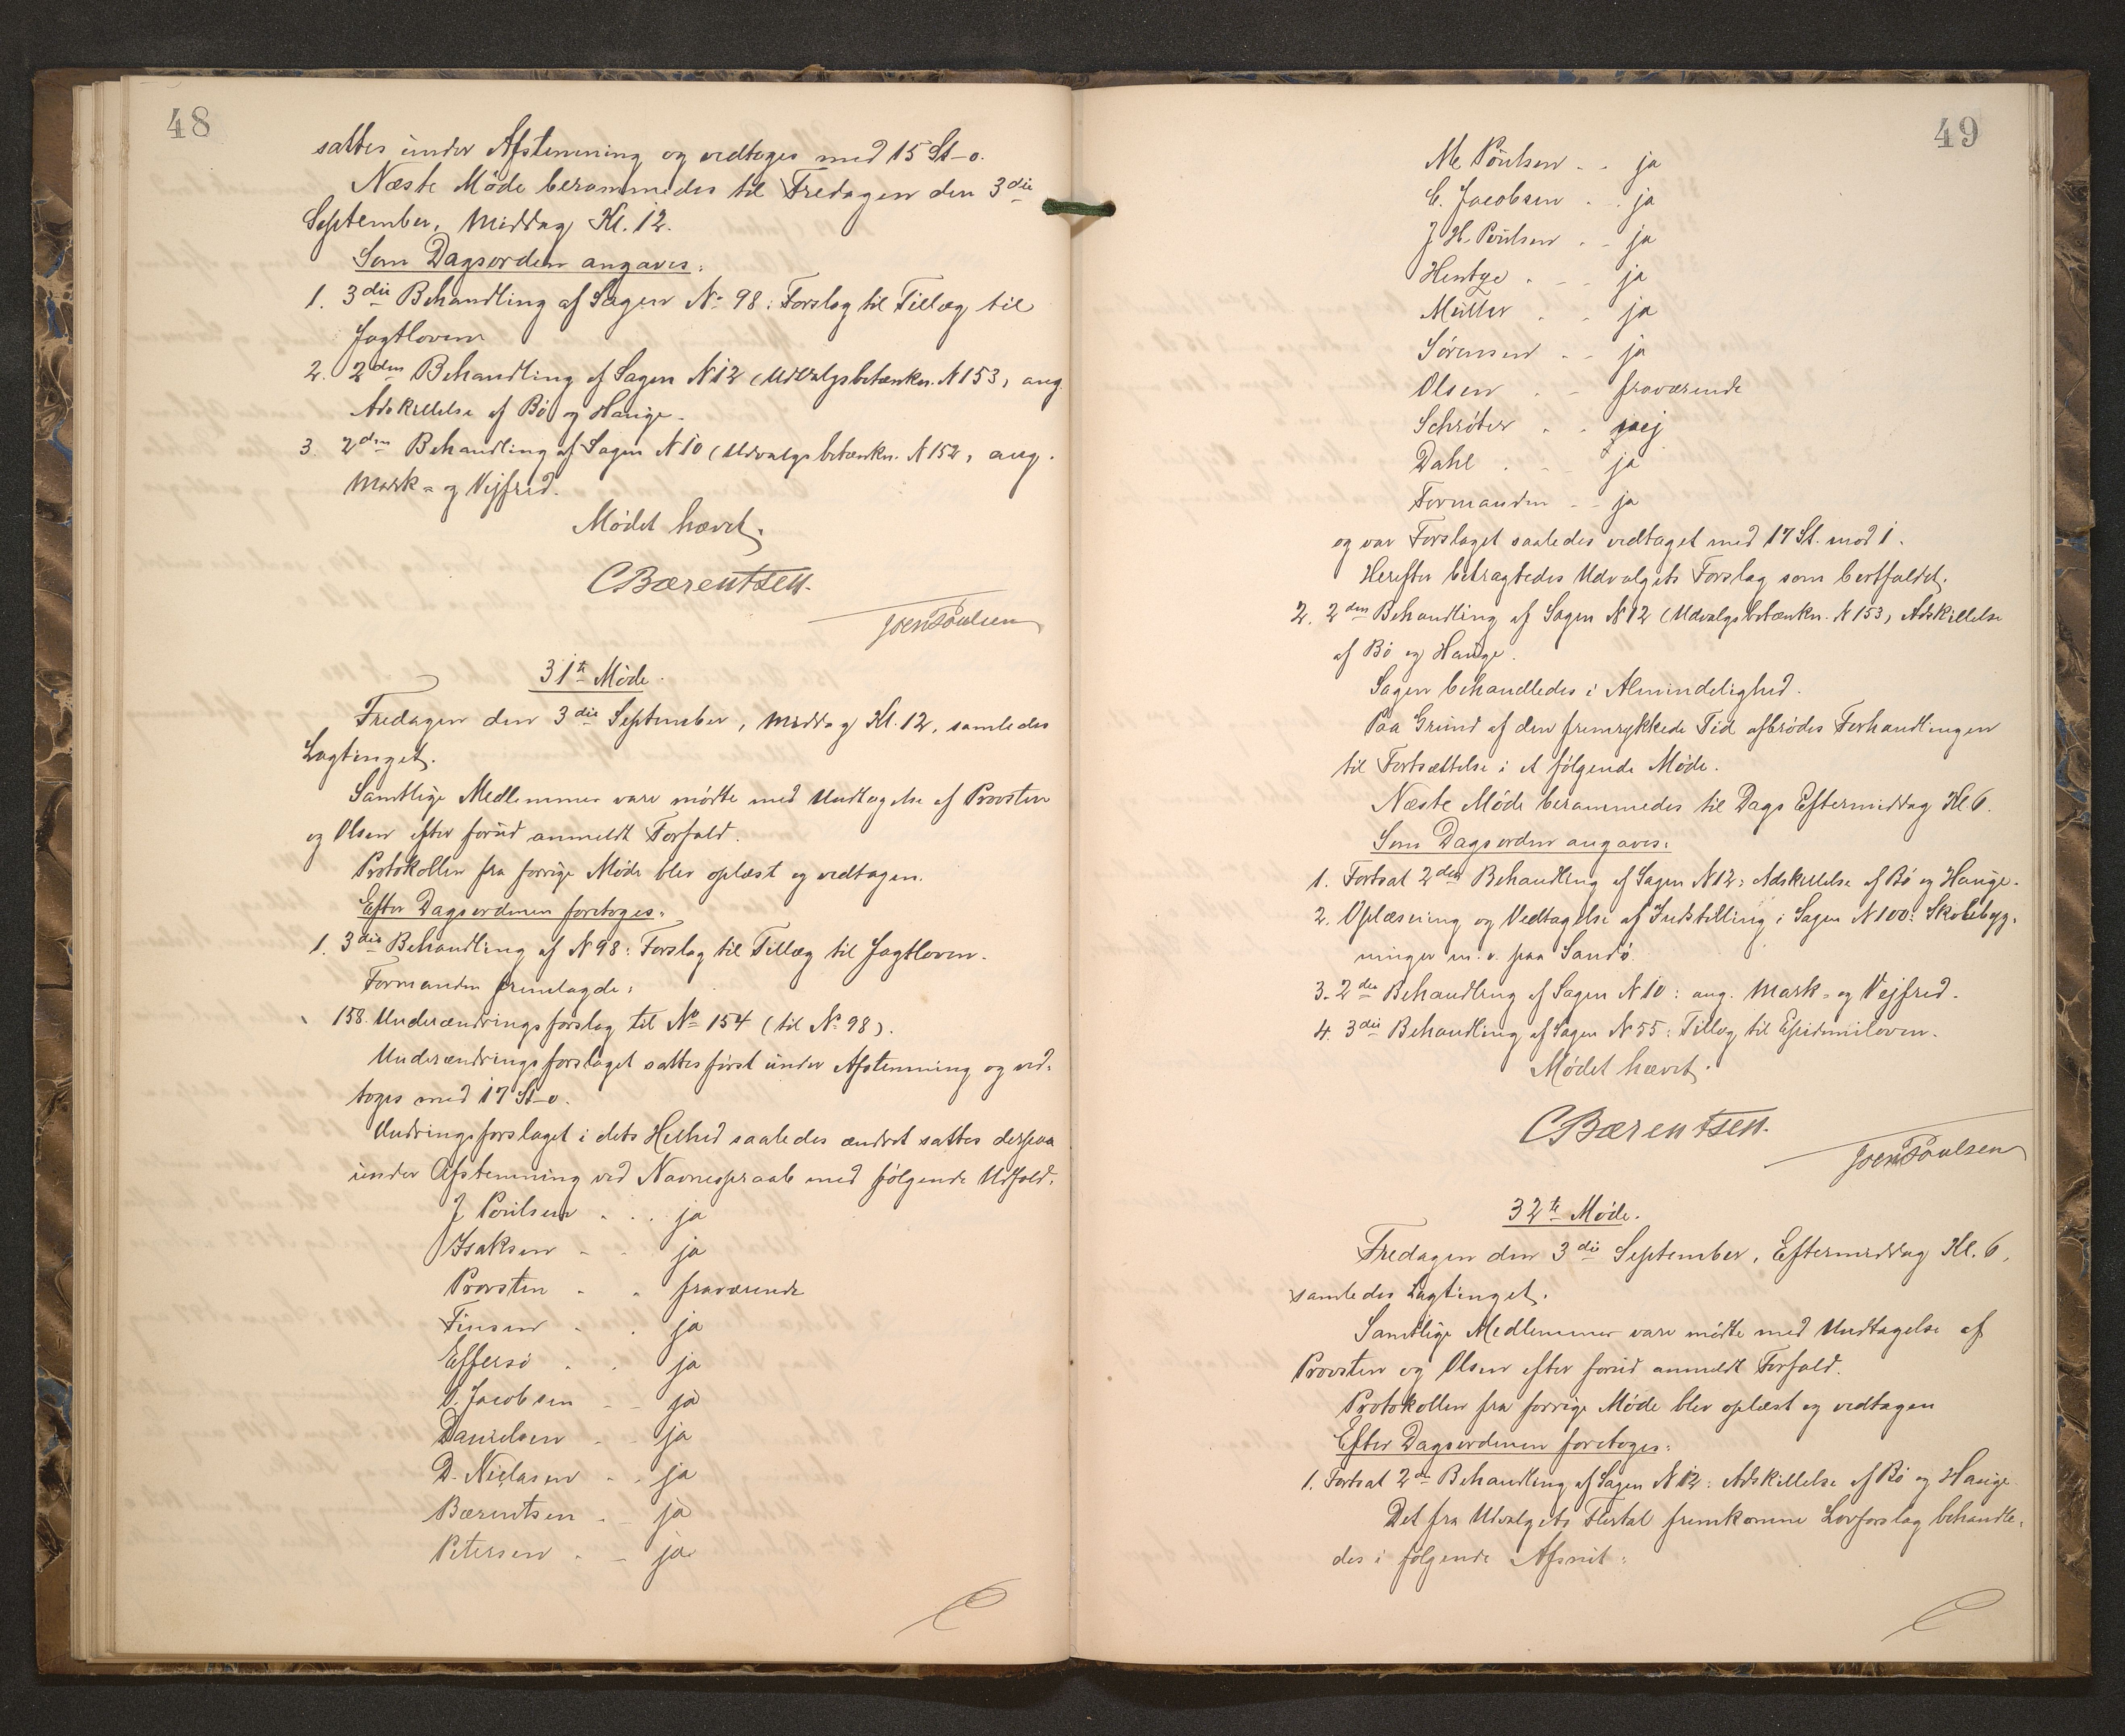 48
sattes under Afstemning og vedtoges med 15 St-0.
Næste Møde berammedes til Fredagen den 3die
September, Middag Kl. 12.
Som Dagsorden angaves:
1. 3die Behandling af Sagen No 98: Forslag til Tillæg til
Jagtloven
2. 2den Behandling af Sagen N 12 (Udvalgsbetænkn. N 153, ang.
Adskillelse af Bø og Hauge.
3. 2den Behandling af Sagen N 10 (Udvalgsbetænkn. N 152, ang.
Mark- og Vejfred.
Mødet hævet.
CBærentsen.
Joen Poulsen
31te Møde.
Fredagen den 3die September, Middag Kl. 12, samledes
Lagtinget.
Samtlige Medlemmer vare mødte med Undtagelse af Provsten
og Olsen efter forud anmeldt Forfald.
Protokollen fra forrige Møde blev oplæst og vedtagen.
Efter Dagsordenen foretoges:
1. 3die Behandling af N 98: Forslag til Tillæg til Jagtloven.
Formanden fremlagde:
158. Underændringsforslag til No 154 (til No 98).
Underændringsforslaget sattes først under Afstemning og ved-
toges med 17 St-0.
Ændringsforslaget i dets Helhed saaledes ændret sattes derpaa
under Afstemning ved Navneopraab med følgende Udfald:
J Poulsen . . . ja
Isaksen - - ja
Provsten - - fraværende
Finsen - . ja
Effersø . . ja
O. Jacobsen - - ja
Danielsen - - ja
D. Niclasen - . ja
Bærentsen . - ja
Petersen . - ja
49
M Poulsen - . ja
C. Jacobsen . . ja
J H. Poulsen . - ja
Hentze . - - ja
Müller . . ja
Sørensen . - ja
Olsen . - fraværende
Schrøter . . nej
Dahl . - - ja
Formanden - - ja
og var Forslaget saaledes vedtaget med 17 St. mod 1.
Herefter betragtedes Udvalgets Forslag som bortfaldet.
2. 2den Behandling af Sagen N 12 (Udvalgsbetænkn. N 153, Adskillelse
af Bø og Hauge.
Sagen behandledes i Almindelighed.
Paa Grund af den fremrykkede Tid afbrødes Forhandlingen
til Fortsættelse i et følgende Møde.
Næste Møde berammedes til Dags Eftermiddag Kl 6.
Som Dagsorden angaves:
1. Fortsat 2den Behandling af Sagen N 12: Adskillelse af Bø og Hauge.
2. Oplæsning og Vedtagelse af Indstilling i Sagen N 100: Skolebyg-
ninger m. v. paa Sandø.
3. 2den Behandling af Sagen N 10: ang. Mark- og Vejfred.
4. 3die Behandling af Sagen N 55: Tillæg til Epidemiloven.
Mødet hævet.
CBærentsen.
Joen Poulsen
32te Møde.
Fredagen den 3die September, Eftermiddag Kl. 6,
samledes Lagtinget.
Samtlige Medlemmer vare mødte med Undtagelse af
Provsten og Olsen efter forud anmeldt Forfald.
Protokollen fra forrige Møde blev oplæst og vedtagen
Efter Dagsordenen foretoges:
1. Fortsat 2den Behandling af Sagen N 12: Adskillelse af Bø og Hauge.
Det fra Udvalgets Flertal fremkomne Lovforslag behandle-
des i følgende Afsnit: